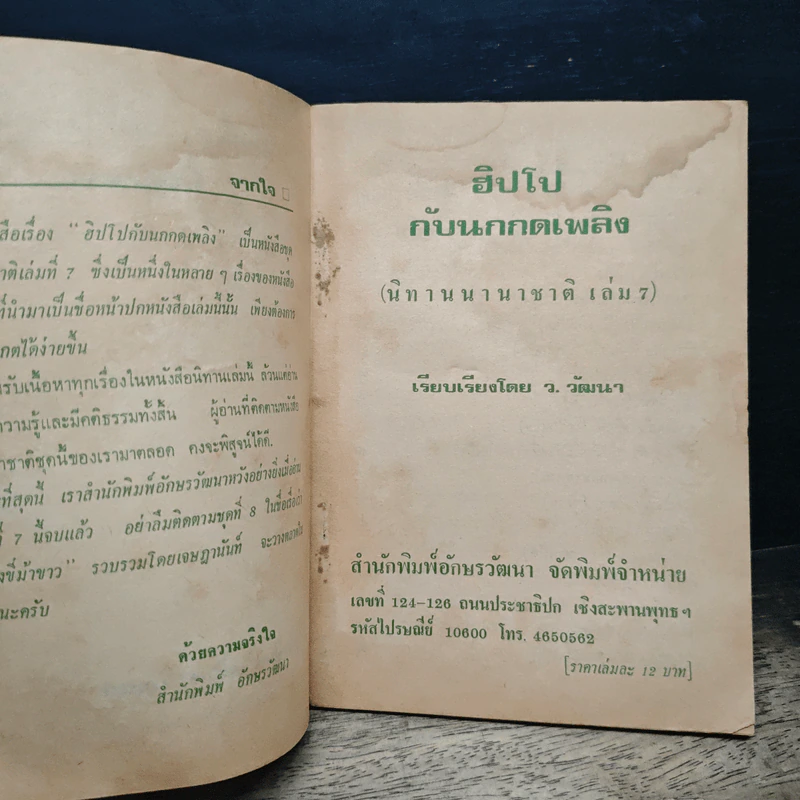 จากใจ
สือเรื่อง "ฮิปโปกับนกกดเพลิง" เป็นหนังสือชุด
าติเล่มที่ 7 ซึ่งเป็นหนึ่งในหลาย ๆ เรื่องของหนังสือ
ที่นำมาเป็นชื่อหน้าปกหนังสือเล่มนี้นั้น เพียงต้องการ
เกตได้ง่ายขึ้น
รับเนื้อหาทุกเรื่องในหนังสือนิทานเล่มนี้ ล้วนแต่อ่าน
วามรู้และมีคติธรรมทั้งสิ้น ผู้อ่านที่ติดตามหนังสือ
าชาติชุดนี้ของเรามาตลอด คงจะพิสูจน์ได้ดี.
ที่สุดนี้ เราสำนักพิมพ์อักษรวัฒนาหวังอย่างยิ่งเมื่ออ่าน
ที่ 7 นี้จบแล้ว อย่าลืมติดตามชุดที่ 8 ในชื่อเรื่อง
งขี่ม้าขาว" รวบรวมโดยเจษฎานันท์ จะวางตลาด
นะครับ
ด้วยความจริงใจ
สำนักพิมพ์ อักษรวัฒนา
ฮิปโป
กับนกกดเพลิง
(นิทานนานาชาติ เล่ม 7)
เรียบเรียงโดย ว. วัฒนา
สำนักพิมพ์อักษรวัฒนา จัดพิมพ์จำหน่าย
เลขที่ 124-126 ถนนประชาธิปก เชิงสะพานพุทธฯ
รหัสไปรษณีย์ 10600 โทร. 4650562
[ราคาเล่มละ 12 บาท]